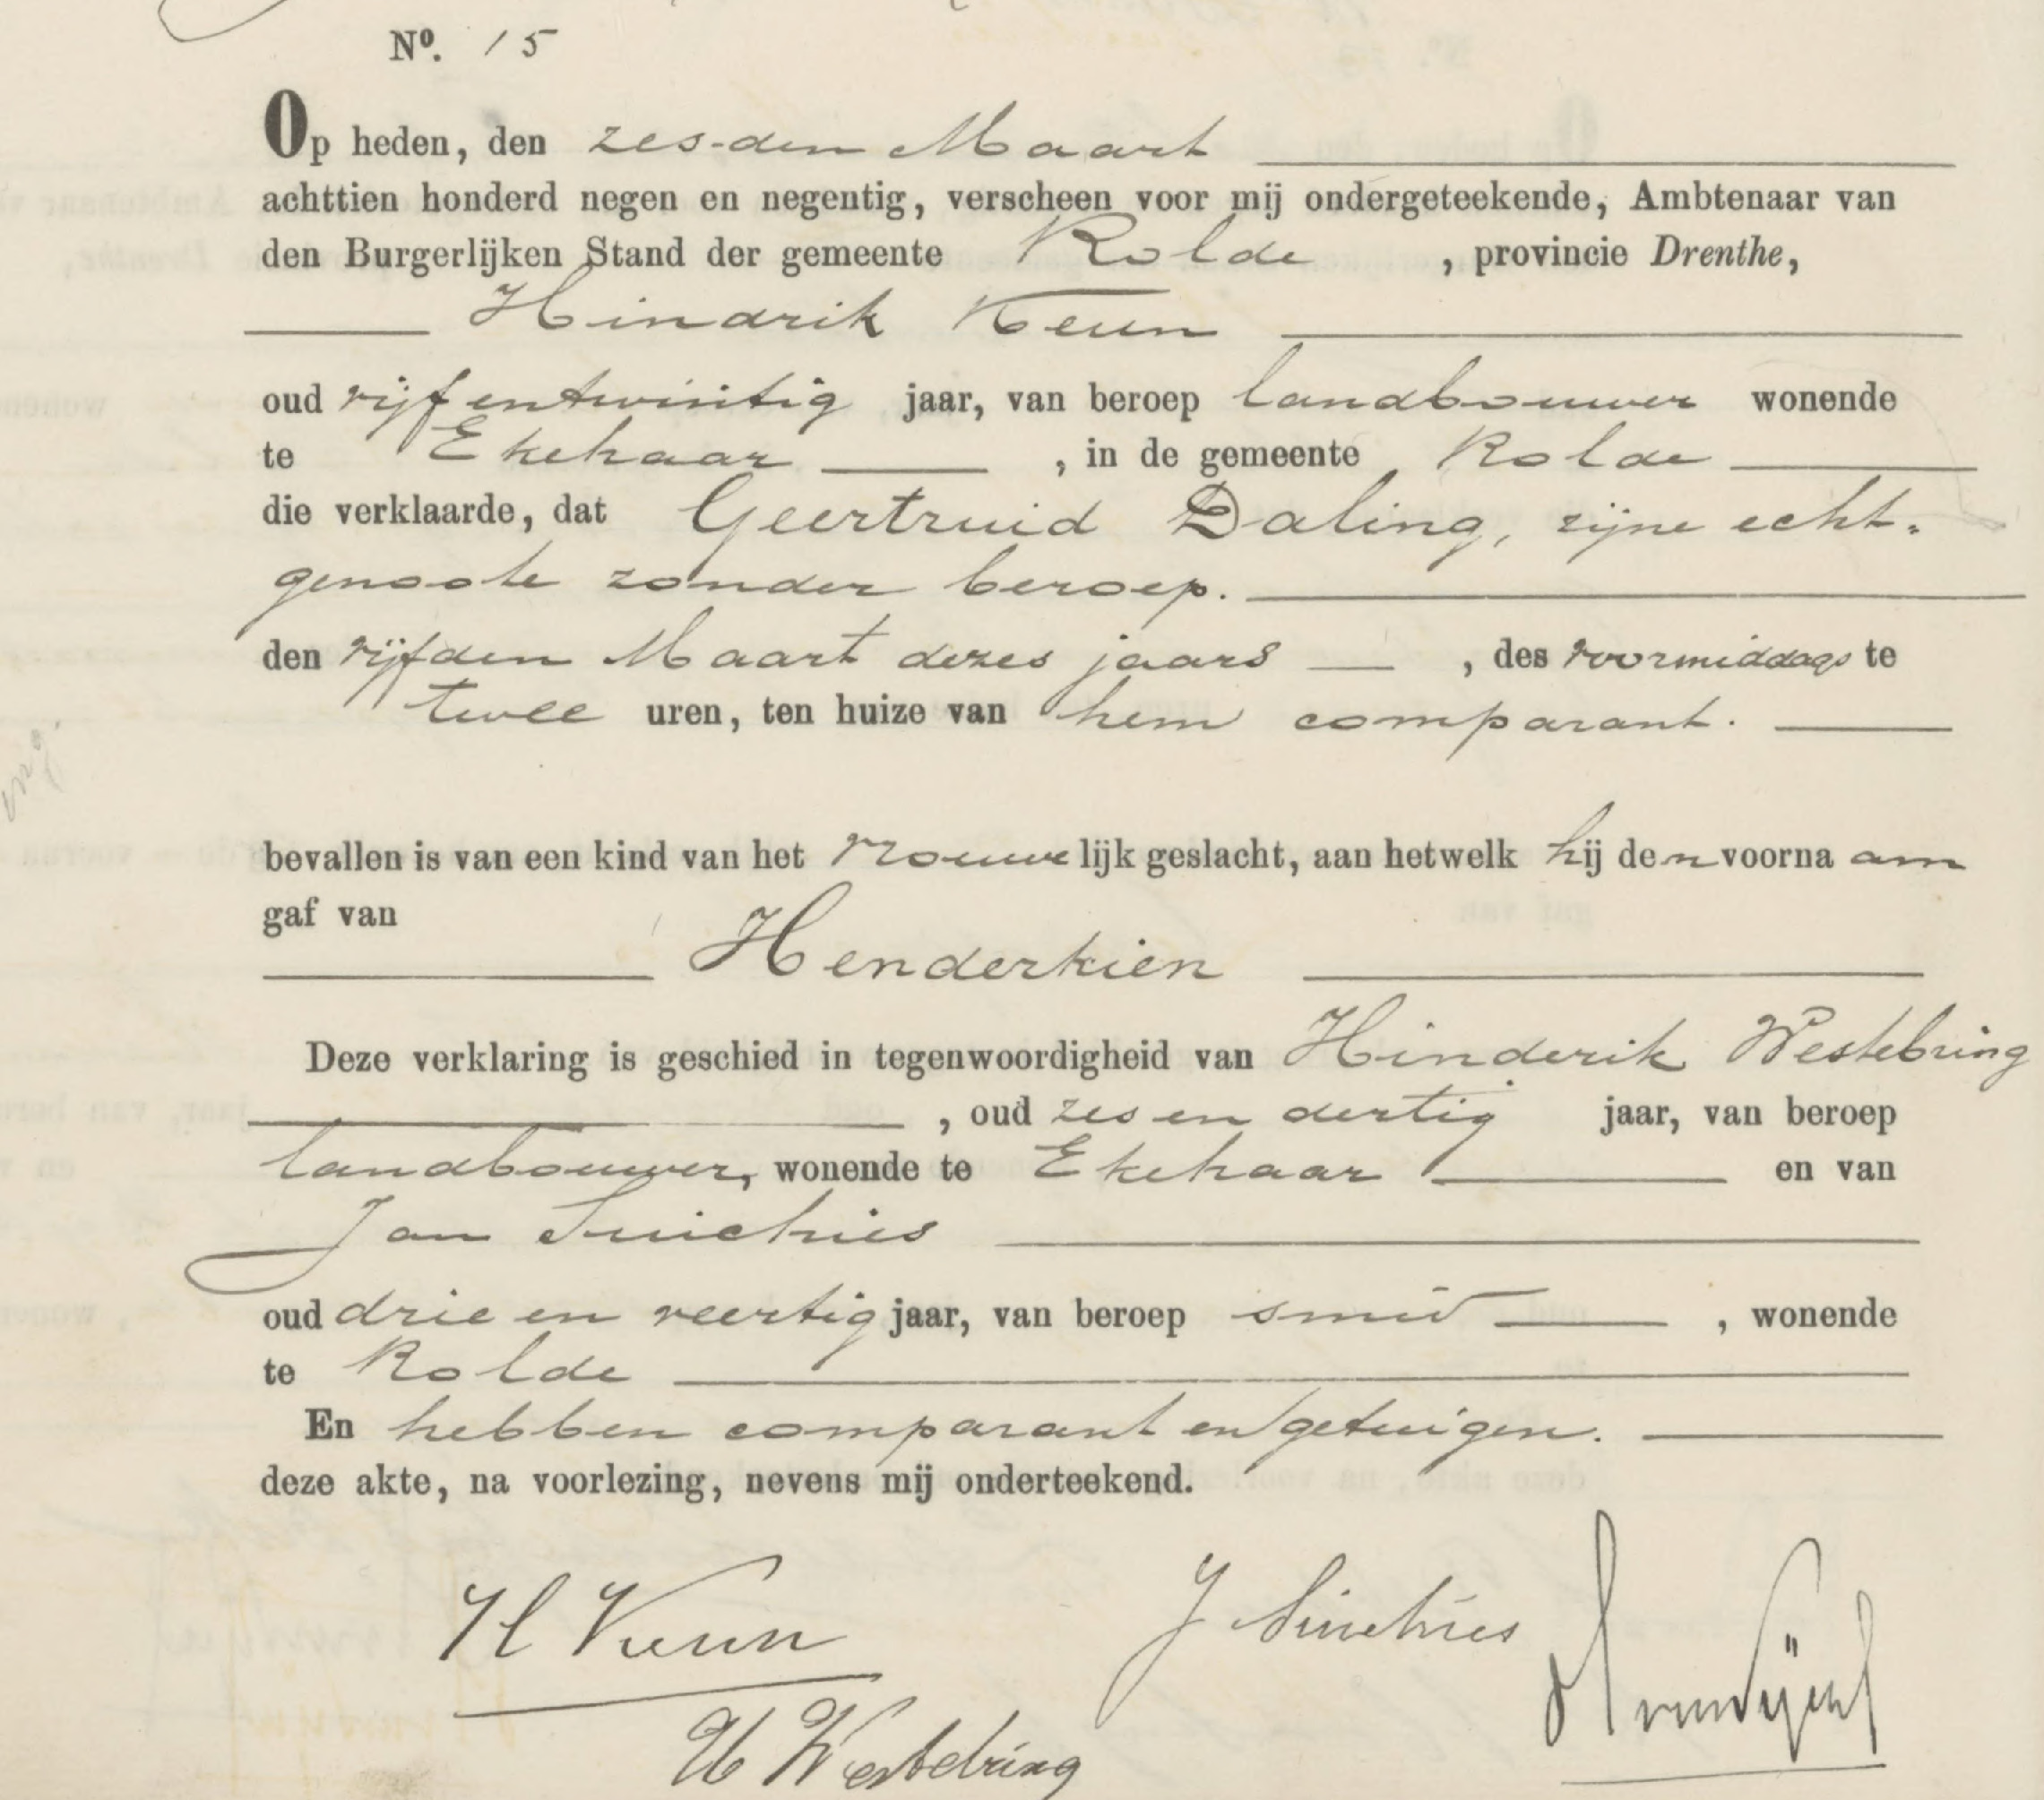 Nº. 15
Op heden, den zesden Maart
achttien honderd negen en negentig, verscheen voor mij ondergeteekende, Ambtenaar van
den Burgerlijken Stand der gemeente Rolde, provincie Drenthe,
Hindrik Keun
oud vijfentwintig jaar, van beroep landbouwer wonende
te Ekehaar, in de gemeente Rolde
die verklaarde, dat Geertruid Daling, zijne echt-
genoote zonder beroep.
den vijfden Maart dezes jaars, des voormiddags te
twee uren, ten huize van hem comparant.
bevallen is van een kind van het vrouwelijk geslacht, aan hetwelk hij den voornaam
gaf van
Henderkien
Deze verklaring is geschied in tegenwoordigheid van Hinderik Westebring
, oud zes en dertig jaar, van beroep
landbouwer, wonende te Ekehaar en van
Jan Suichies
oud drie en veertig jaar, van beroep smid, wonende
te Rolde
En hebben comparant en getuigen.
deze akte, na voorlezing, nevens mij onderteekend.
H Keun
J Suichies
H Westebring